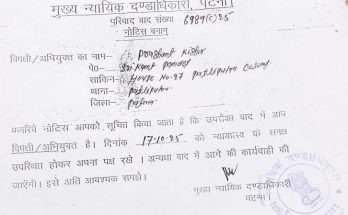 मुख्य न्यायिक दण्डाधिकारी, पटना।
परिवाद वाद संख्या 6989(C)25
नोटिस बनाम
विपक्षी/अभियुक्त का नाम- Prashant Kishor
पे०
साकिन House No-27 Patliputra Colony
थाना- Patliputra
जिला- Patna
जरिये नोटिस आपको सूचित किया जाता है कि उपरोक्त वाद में आप
विपक्षी/अभियुक्त है। दिनांक 17.10.25 को न्यायालय के समक्ष
उपस्थित होकर अपना पक्ष रखे । अन्यथा वाद में आगे की कार्यवाही की
जाएगी। इसे अति आवश्यक समझे।
मुख्य न्यायिक दण्डाधिकारी
पटना।